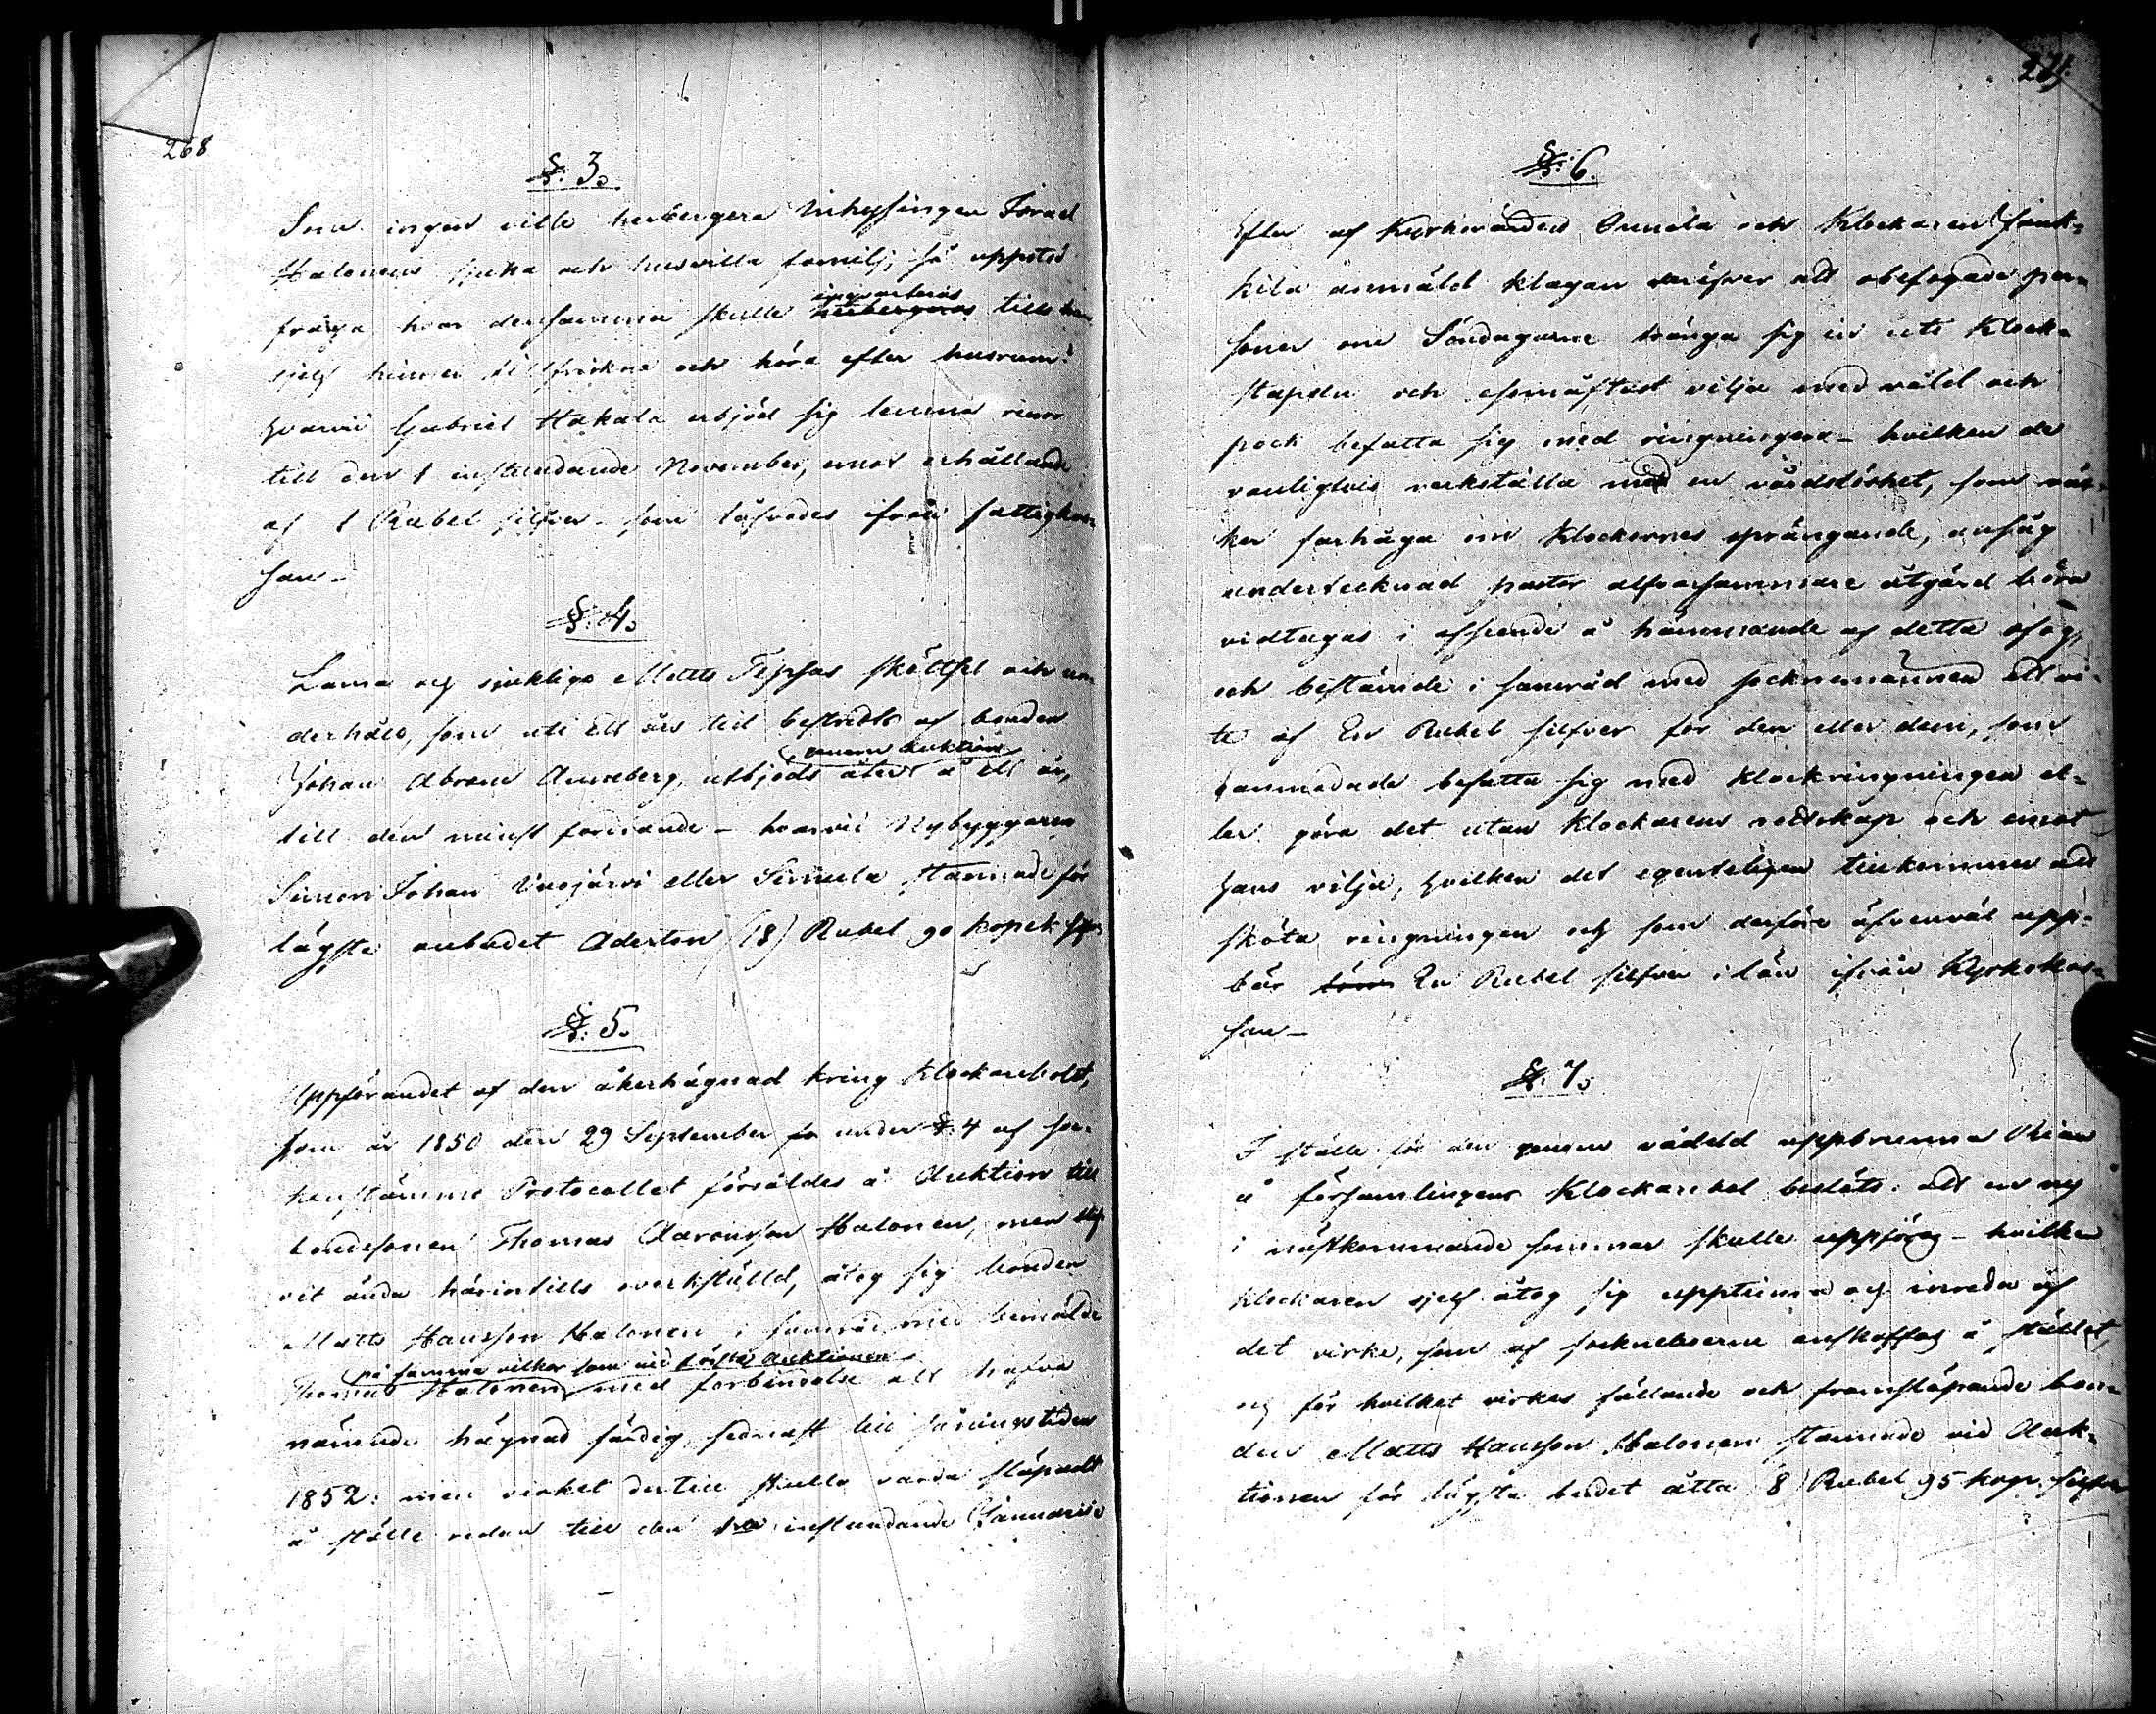 268
§. 3.
Som ingen ville herbergera Inhysingen Israel
Halonens sjuka och husvilla familj, så uppstod
fråga hvar densamma skulle inqvarteras herbergeras tills han
sjelf hinner tillfriskna och höra efter husrum:
hvarvid Gabriel Hakala erbjöd sig lemna rum
till den 1 instundande November, emot erhållande
af 1 Rubel silfver som lofvades ifrån fattigkas-
san -
§. 4.
Lama och sjukliga Matts Tepsas sköttsel och un-
derhåld, som uti ett års tid bestridts af bonden
Johan Abram Anneberg, utbjöds åter genom auktion å ett år,
till den minst fordrande - hvarvid Nybyggaren
Simon Johan Unojärvi eller Sirmula stannade för
lägsta anbudet Aderton (18) Rubel 90 kopek Silfver
§. 5.
Uppförandet af den åkerhägnad kring Klockarebolet,
som år 1850 den 29 September under §. 4 af soc-
kenstämmo Protocollet försåldes å Auktion till
bondesonen Thomas Aaronsson Halonen, men ej bli-
vit ända härintills verkställd, åtog sig bonden
Matts Hansson Halonen i samråd med bemälde
på samma vilkor som vid första Auktionen
Thomas Halonen med förbindelse att hafva
nämnde hägnad färdig sednast till såningstiden
1852: men virket dertill skulle vara släpadt
å ställe redan till den 1sta instundande Januarii
271.
§. 6.
Efter af Kyrkovärden Onnela och Klockaren Junk-
hila anmäld klagan öfver att obefogade per-
soner om Söndagarne tränga sig in uti Klock-
stapeln och esomåftast vilja med våld och
pock befatta sig med ringningen - hvilken de
vanligtvis verkställa med en vårdslöshet, som väc-
ker farhåga om Klockornes sprängande, ansåg
undertecknad pastor alfvarsammare åtgärd böra
vidtagas i afseende å hämmande af detta ofog,
och bestämde i samråd med socknemännen ett vi-
te af En Rubel silfver för den eller dem, som
oanmodade befatta sig med klockringningen el-
ler göra det utan Klockarens vettskap och emot
hans vilja, hvilken det egenteligen tillkommer att
sköta ringningen och som derföre äfvenväl upp-
bär En Rubel silfver i lön ifrån Kyrkokas-
san -
§. 7.
I stället för den genom vådeld uppbrunna Rian
å församlingens Klockarebol beslöts: att en ny
i nästkommande sommar skulle uppföras - hvilken
Klockaren sjelf åtog sig upptimra och inreda af
det virke, som af sockneboerne anskaffas å stället,
och för hvilket virkes fällande och framsläpande bon-
den Matts Hansson Halonen stannade vid Auk-
tionen för lägsta budet åtta (8) Rubel 95 kop. silfver